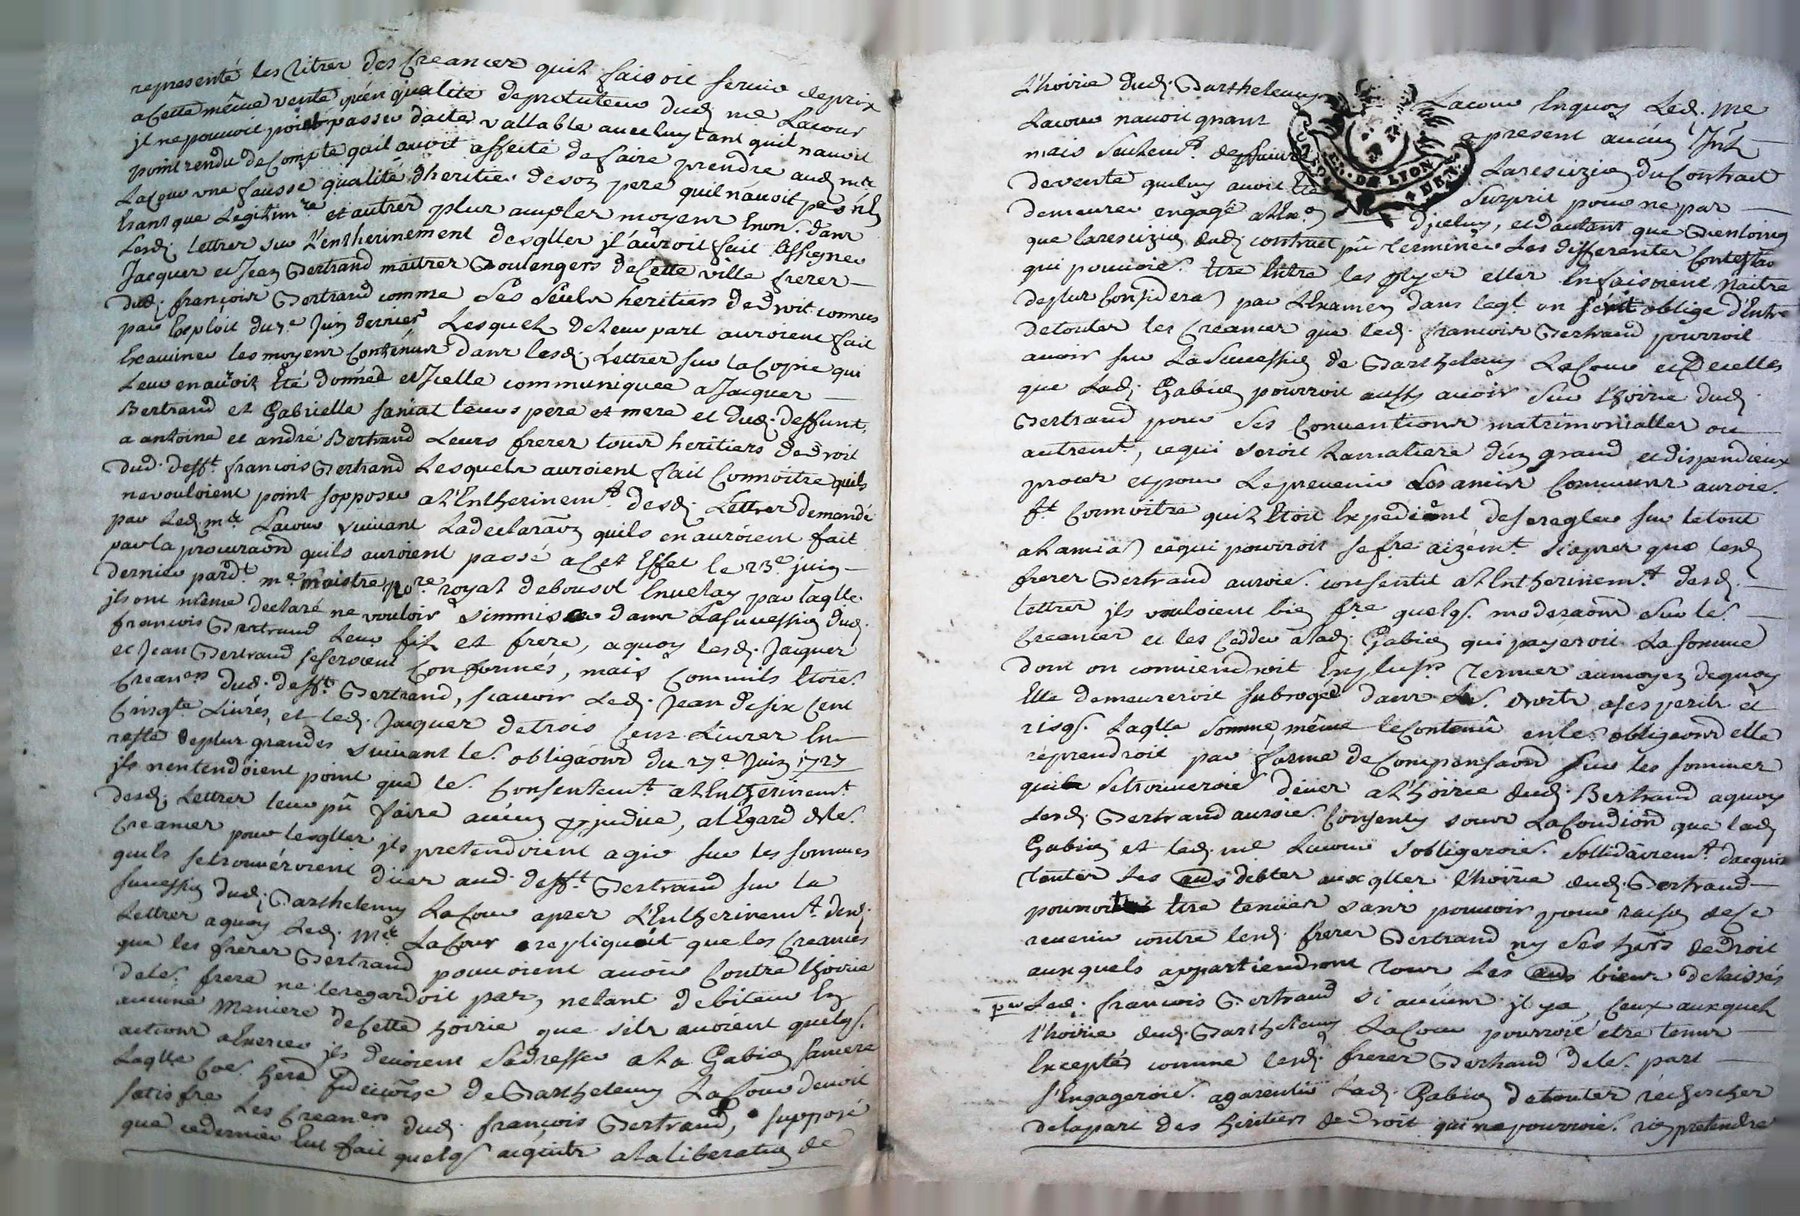 representé les titres des Creances quil faisoit servir de prix
a cette même vente qu'en qualité de protuteur dud. me Lacour
il ne pouvoit point passer d'acte vallable avec luy tant quil n'auroit
point rendu de Compte quil avoit affecté de faire prendre aud. me
Lacour une fausse qualité d'heritier de son pere quil n'avoit pas
Etant que Legitim.re et autres plus amples moyens Enon. dans
Lesd. lettres sur L'entherinement desqlles il auroit fait assigner
Jacques et Jean Bertrand maitres Boulengers de Cette ville freres
dud. françois Bertrand comme ses seuls heritiers de droit connus
par Exploit du 7.e Juin dernier Lesquels de leur part auroient fait
Examiner les moyens Contenus dans lesd. Lettres sur la Copie qui
Leur en avoit Eté donnée et Icelle communiquée a Jacques
Bertrand et Gabrielle Saniat leurs pere et mere et dud. deffunt,
a antoine et andré Bertrand Leurs freres tous heritiers de droit
dud. deff.t françois Bertrand Lesquels auroient fait Connoitre quils
ne vouloient point s'opposer a L'Entherinem.t desd. Lettres demandé
par Led. m.e Lacour suivant La declaraõn quils en auroient fait
par la procuraõn quils auroient passé a cet Effet le 23.e juin
dernier pard.t m.e maistre no.re royal de bousol Envelay par laqlle
ils ont même declaré ne vouloir s'immiscer dans La Succession dud.
françois Bertrand Leur fils et frere, a quoy lesd. Jacques
et Jean Bertrand se seroient Conformés, mais Comm'ils Etoie.
Crean.ers dud. deff.t Bertrand, scavoir Led. Jean de six Cent
Cinq.te Livres, et led. Jacques de trois Cent Livres En
reste de plus grandes suivant les obligaõns du 27.e Juin 1727
ils n'entendoient point que le. Consentem.t a L'Entherinem.t
desd. Lettres leur pû faire aucun prejudice, a l'Egard de le.
Creances pour lesqlles ils pretendoient agir sur les sommes
quils se trouveroient düer aud. deff.t Bertrand sur la
succession dud. Barthelemy Lacour apres L'Entherinem.t desd.
Lettres a quoy Led. M.e Lacour repliquoit que les Creances
que les freres Bertrand pouvoient avoir Contre l'hoirie
de le. frere ne le regardoit pas, n'etant debiteur En
aucune Maniere de Cette hoirie que s'ils avoient quelqs.
actions a Exercer ils devoient s'adresser a la Gabien
Laqlle Coe. hered. fiduciaire de Barthelemy Lacour devoit
satisfre Les Crean.ers dud. françois Bertrand, supposé
que ce dernier Eut fait quelqs acquits a la liberation de
L'hoirie dud. Barthelemy Lacour En quoy Led. Me
Lacour n'avoit quant a present aucun Int.
mais seulem.t de La rescizion du Contrat
de vente quil luy avoit Eté surpris pour ne pas
demeurer engagé d'iceluy, et d'autant que Bien loing
que la rescizion dud. contract pû terminer Les differentes Contesta
qui pouvoie. Etre Entre les ptyes elles En faisoient Naitre
de plus Considera par L'Examen dans leql on seroit obligé d'Entre
de toutes les Creances que led. francois Bertrand pourroit
avoir sur La Succession de Barthelemy Lacour et de celles
que Lad. Gabien pourroit aussy avoir Sur l'hoirie dud.
Bertrand pour ses Conventions matrimonialles ou
autrem.t, ce qui seroit La matiere d'un grand et dispendieux
proces et pour Le prevenir Les amis Communs auroie.
f.t Connoitre quil Etoit Expedient de se regler sur le tout
a L'amia ce qui pourroit se fre aizém.t d'apres que lesd.
freres Bertrand auroie. consenti a L'Entherinem.t desd.
lettres ils vouloient bien fre quelqs. moderaõns sur le.
Creances et les Ceder a lad. Gabien qui payeroit La somme
dont on conviendroit En plus.rs termes au moyen de quoy
Elle demeureroit subrogée dans Le. droits a ses perils et
risqs. Laqlle somme même le Contenû en le. obligaõns elle
reprendroit par forme de Compensaõn sur les sommes
quils se trouveroie. düer a L'hoirie dud. Bertrand a quoy
Lesd. Bertrand auroie. Consenty sous La Condiõn que lad.
Gabien et led. me Lacour s'obligeroie. sollidairem.t d'acquit
toutes Les debtes auxqlles l'hoirie dud. Bertrand
pourroit Etre tenüe sans pouvoir pour raison de Ce
revenir contre lesd. freres Bertrand ny ses hers de droit
auxquels appartiendront tous Les biens delaissés
par Led. françois Bertrand si aucuns il y a, Ceux auxquels
l'hoirie dud. Barthelemy Lacour pourroit etre tenus
Exceptés comme lesd. freres Bertrand de le. part
s'Engageroie. a garentir Lad. Gabien de toutes recherches
de la part des heritiers de droit qui ne pourroie. rien pretendre